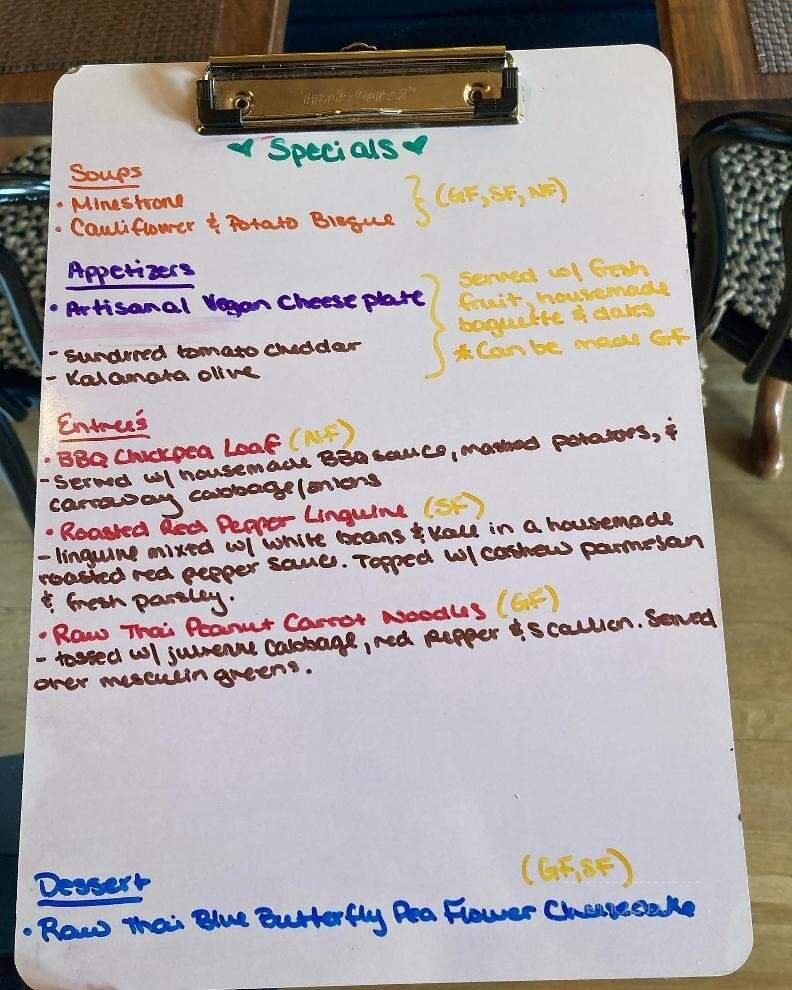 ♥ Specials ♥
Soups
• Minestrone
• Cauliflower & Potato Bisque
(GF, SF, NF)
Appetizers
• Artisanal Vegan Cheese plate
- sundried tomato cheddar
- Kalamata olive
Served w/ fresh
fruit, housemade
baguette & dates
*Can be made GF
Entree's
• BBQ Chickpea Loaf (NF)
- Served w/ housemade BBQ sauce, mashed potatoes, &
carraway cabbage/onions
• Roasted Red Pepper Linguine (SF)
- linguine mixed w/ white beans & kale in a housemade
roasted red pepper sauce. Topped w/ cashew parmesan
& fresh parsley.
• Raw Thai Peanut Carrot Noodles (GF)
- tossed w/ julienne cabbage, red pepper & scallion. Served
over mesculin greens.
Dessert
(GF, SF)
• Raw Thai Blue Butterfly Pea Flower Cheesecake